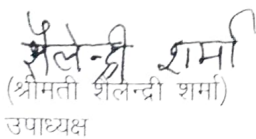 शैलेन्द्री शर्मा
(श्रीमती शैलेन्द्री शर्मा)
उपाध्यक्ष